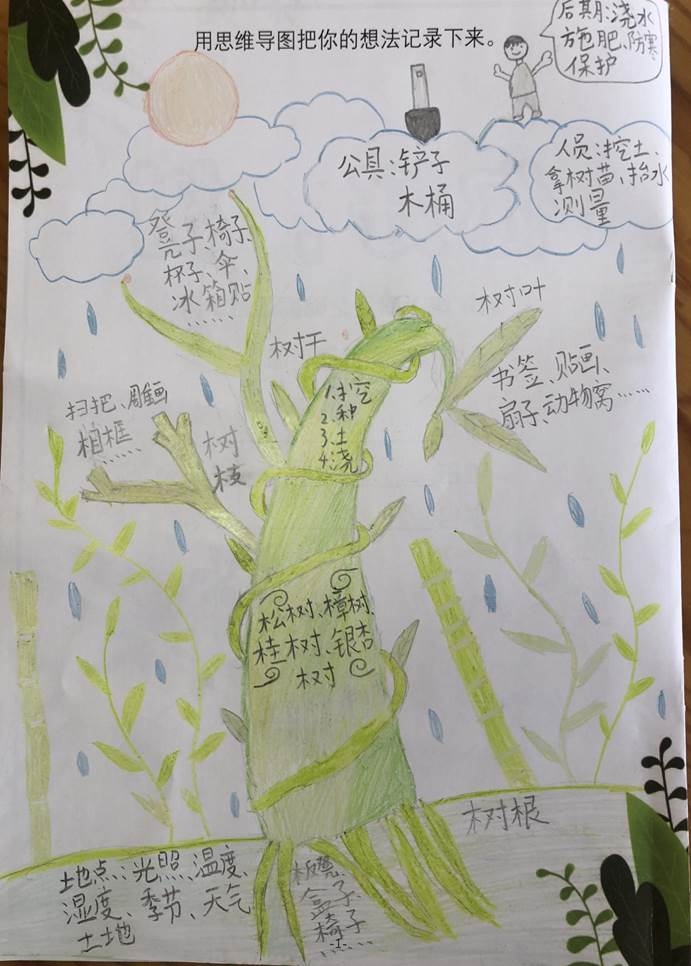 用思维导图把你的想法记录下来。
后期:浇水
施肥、防寒
保护
公具:铲子
木桶
人员:挖土、
拿树苗、抬水
测量
凳子、椅子、
杯子、伞、
冰箱贴
……
树干
树叶
书签、贴画、
扇子、动物窝……
扫把、雕画
相框……
树
枝
1.挖
2.种
3.土
4.浇
松树、樟树、
桂树、银杏
树
树根
地点:光照、温度、
湿度、季节、天气
土地
板凳、
盒子、
椅子
……